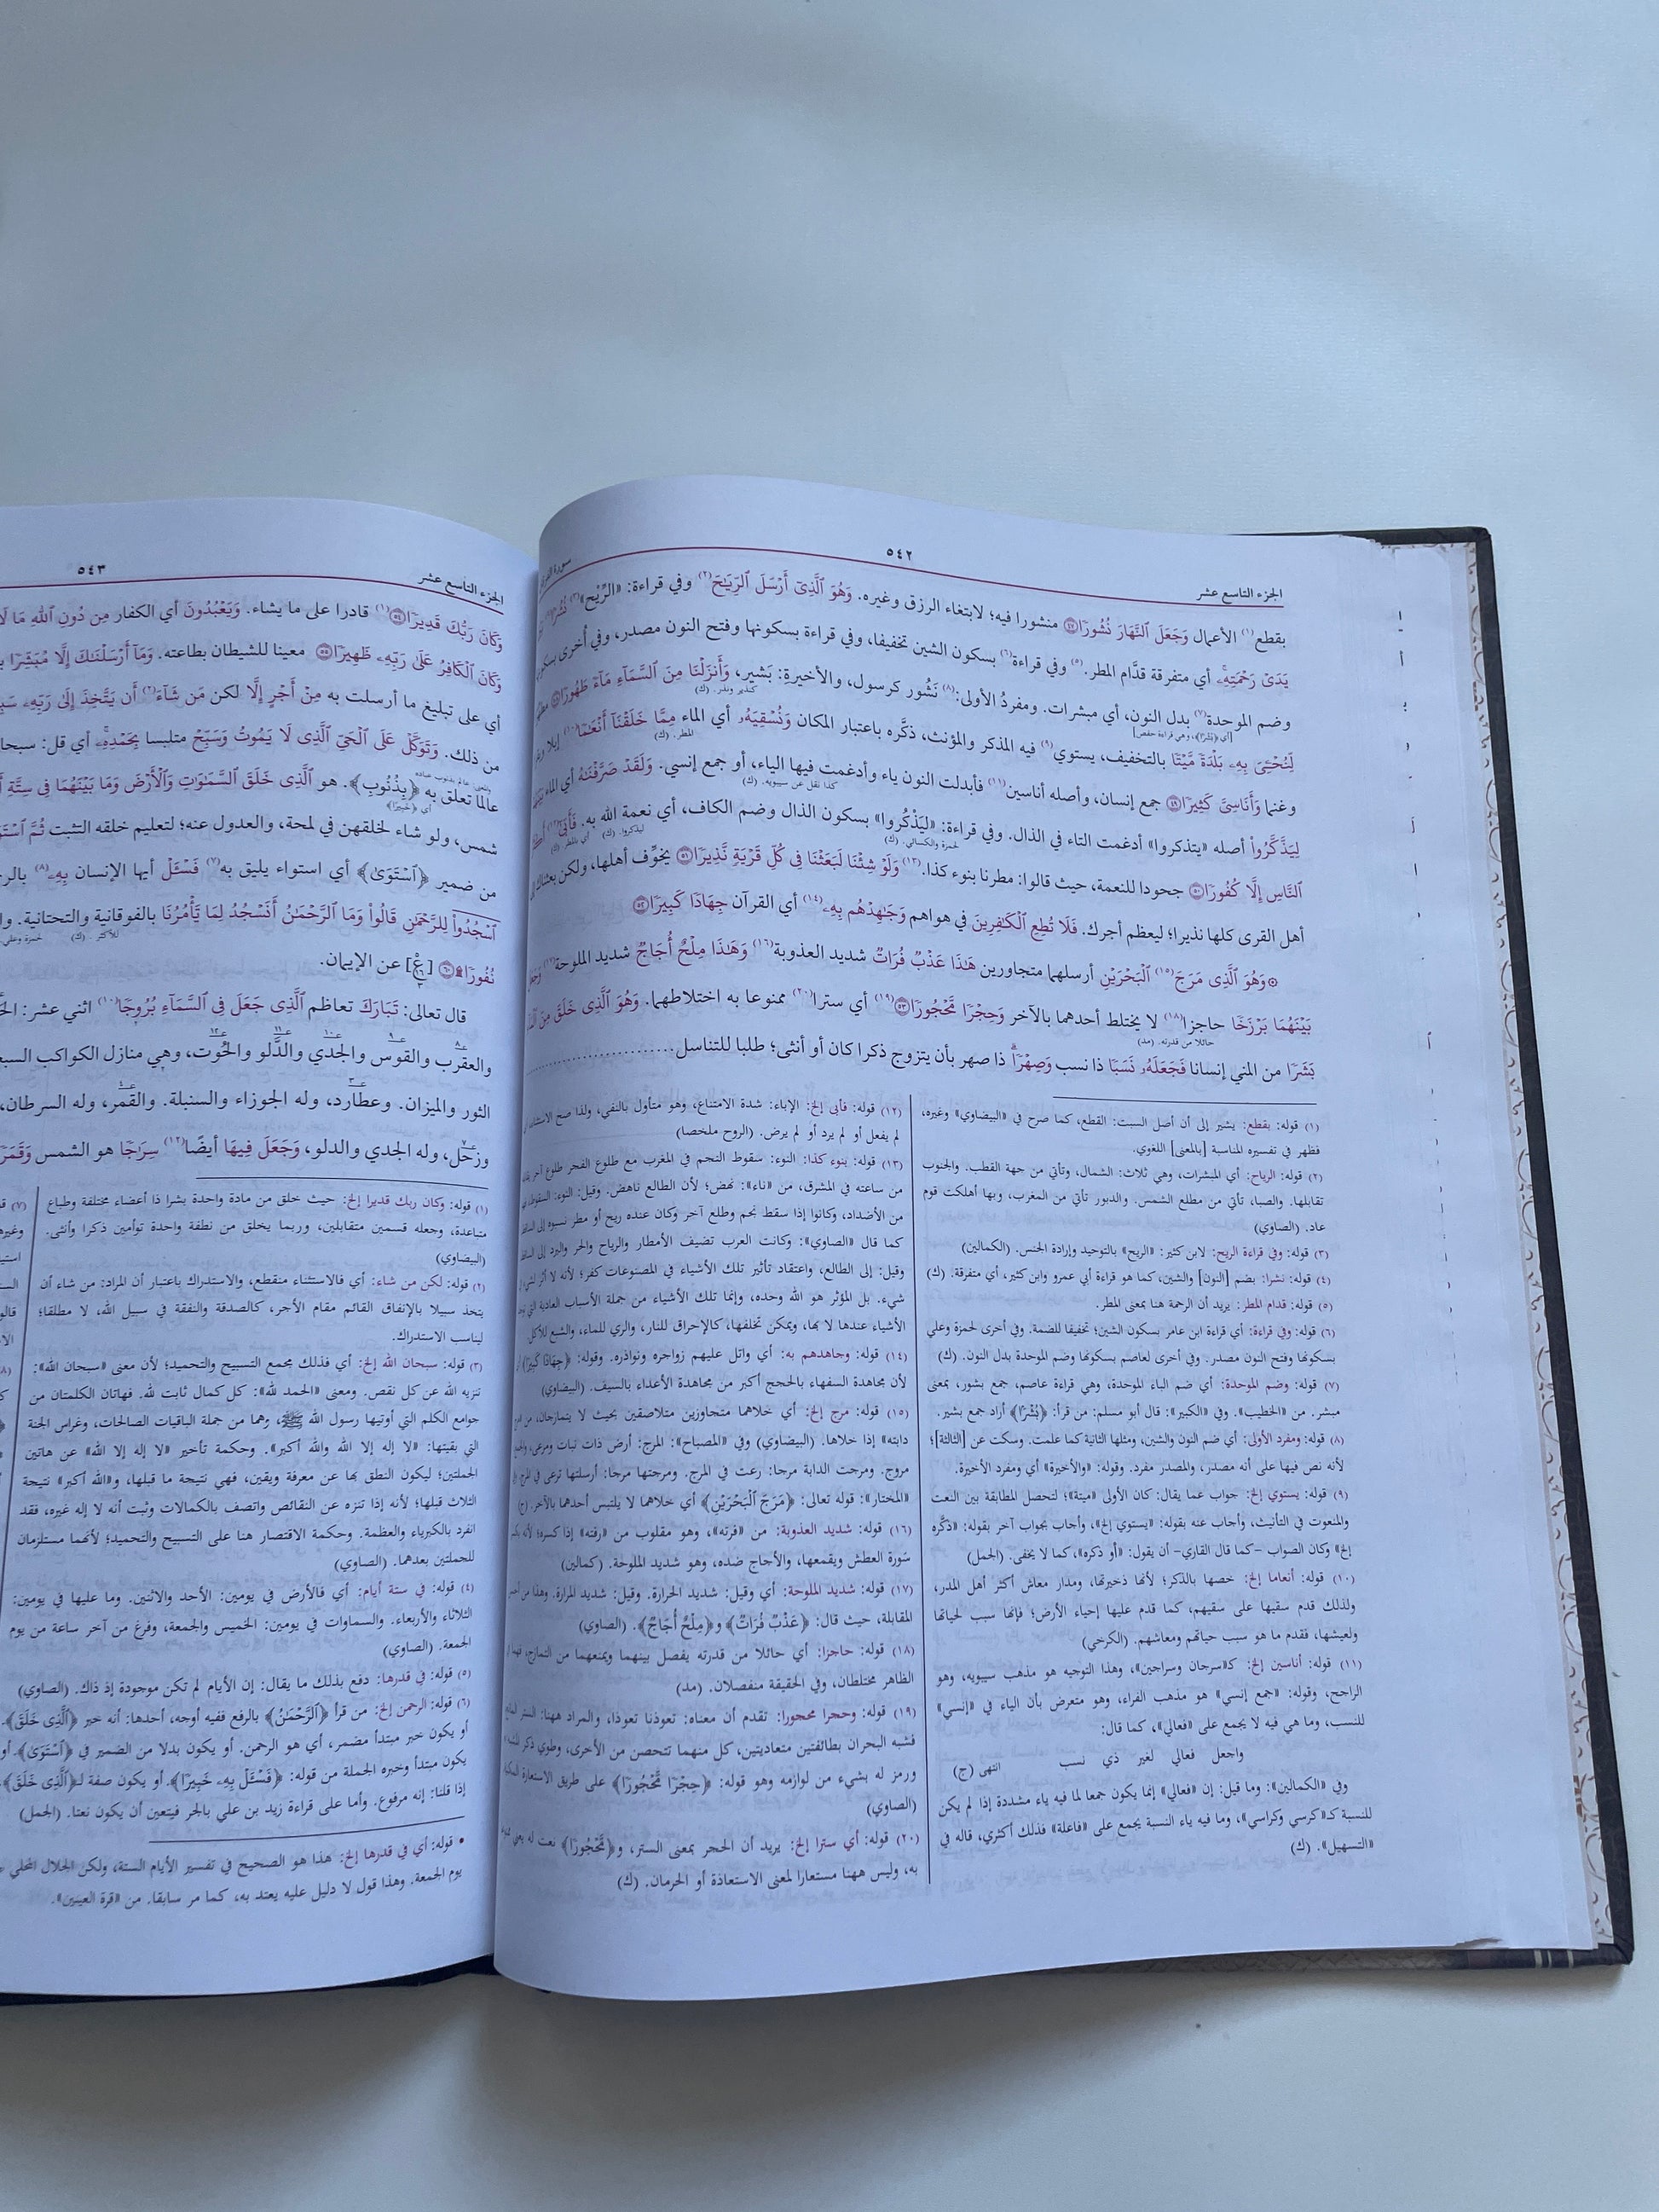 الجزء التاسع عشر
٥٤٢
سورة
بقطع(١) الأعمال وَجَعَلَ ٱلنَّهَارَ نُشُورٗا ۝٤٧ منشورا فيه؛ لابتغاء الرزق وغيره. وَهُوَ ٱلَّذِيٓ أَرۡسَلَ ٱلرِّيَٰحَ(٢) وفي قراءة: «الرِّيْح»(٣)
يَدَيۡ رَحۡمَتِهِۦۚ أي متفرقة قدَّام المطر.(٥) وفي قراءة(٦) بسكون الشين تخفيفا، وفي قراءة بسكونها وفتح النون مصدر، وفي أُخرى بسكونها
وضم الموحدة(٧) بدل النون، أي مبشرات. ومفردُ الأولى:(٨) نَشُور كرسول، والأخيرة: بَشير، وَأَنزَلۡنَا مِنَ ٱلسَّمَآءِ مَآءٗ طَهُورٗا
[أي ﴿بُشۡرَۢا﴾، وهي قراءة حفص] كنذير ونذر. (ك)
لِّنُحۡـِۧيَ بِهِۦ بَلۡدَةٗ مَّيۡتٗا بالتخفيف، يستوي(٩) فيه المذكر والمؤنث، ذكَّره باعتبار المكان وَنُسۡقِيَهُۥ أي الماء مِمَّا خَلَقۡنَآ أَنۡعَٰمٗا(١٠) إبلا
المطر. (ك)
وغنما وَأَنَاسِيَّ كَثِيرٗا ۝٤٩ جمع إنسان، وأصله أناسين(١١) فأبدلت النون ياء وأدغمت فيها الياء، أو جمع إنسي. وَلَقَدۡ صَرَّفۡنَٰهُ أي الماء
كذا نقل عن سيبويه. (ك)
لِيَذَّكَّرُواْ أصله «يتذكروا» أدغمت التاء في الذال. وفي قراءة: «لِيَذْكُروا» بسكون الذال وضم الكاف، أي نعمة الله به. فَأَبَىٰٓ(١٢)
لحمزة والكسائي. (ك) ليذكروا. (ك) أي بالمطر. (ك)
ٱلنَّاسِ إِلَّا كُفُورٗا ۝٥٠ جحودا للنعمة، حيث قالوا: مطرنا بنوء كذا.(١٣) وَلَوۡ شِئۡنَا لَبَعَثۡنَا فِي كُلِّ قَرۡيَةٖ نَّذِيرٗا ۝٥١ يخوِّف أهلها، ولكن بعثناك إلى
أهل القرى كلها نذيرا؛ ليعظم أجرك. فَلَا تُطِعِ ٱلۡكَٰفِرِينَ في هواهم وَجَٰهِدۡهُم بِهِۦ(١٤) أي القرآن جِهَادٗا كَبِيرٗا ۝٥٢
۞ وَهُوَ ٱلَّذِي مَرَجَ(١٥) ٱلۡبَحۡرَيۡنِ أرسلهما متجاورين هَٰذَا عَذۡبٞ فُرَاتٞ شديد العذوبة(١٦) وَهَٰذَا مِلۡحٌ أُجَاجٞ شديد الملوحة(١٧)
بَيۡنَهُمَا بَرۡزَخٗا حاجزا(١٨) لا يختلط أحدهما بالآخر وَحِجۡرٗا مَّحۡجُورٗا ۝٥٣(١٩) أي سترا(٢٠) ممنوعا به اختلاطهما. وَهُوَ ٱلَّذِي خَلَقَ مِنَ
حائلا من قدرته. (مد)
بَشَرٗا من المني إنسانا فَجَعَلَهُۥ نَسَبٗا ذا نسب وَصِهۡرٗاۗ ذا صهر بأن يتزوج ذكرا كان أو أنثى؛ طلبا للتناسل......................
(١) قوله: بقطع: يشير إلى أن أصل السبت: القطع، كما صرح في «البيضاوي» وغيره،
فظهر في تفسيره المناسبة [بالمعنى] اللغوي.
(٢) قوله: الرياح: أي المبشرات، وهي ثلاث: الشمال، وتأتي من جهة القطب. والجنوب
تقابلها. والصبا، تأتي من مطلع الشمس. والدبور تأتي من المغرب، وبها أهلكت قوم
عاد. (الصاوي)
(٣) قوله: وفي قراءة الريح: لابن كثير: «الريح» بالتوحيد وإرادة الجنس. (الكمالين)
(٤) قوله: نشرا: بضم [النون] والشين، كما هو قراءة أبي عمرو وابن كثير، أي متفرقة. (ك)
(٥) قوله: قدام المطر: يريد أن الرحمة هنا بمعنى المطر.
(٦) قوله: وفي قراءة: أي قراءة ابن عامر بسكون الشين؛ تخفيفا للضمة. وفي أخرى لحمزة وعلي
بسكونها وفتح النون مصدر. وفي أخرى لعاصم بسكونها وضم الموحدة بدل النون. (ك)
(٧) قوله: وضم الموحدة: أي ضم الباء الموحدة، وهي قراءة عاصم، جمع بشور، بمعنى
مبشر. من «الخطيب». وفي «الكبير»: قال أبو مسلم: من قرأ: ﴿بُشۡرَۢا﴾ أراد جمع بشير.
(٨) قوله: ومفرد الأولى: أي ضم النون والشين، ومثلها الثانية كما علمت. وسكت عن [الثالثة]؛
لأنه نص فيها على أنه مصدر، والمصدر مفرد. وقوله: «والأخيرة» أي ومفرد الأخيرة.
(٩) قوله: يستوي إلخ: جواب عما يقال: كان الأولى «ميتة»؛ لتحصل المطابقة بين النعت
والمنعوت في التأنيث، وأجاب عنه بقوله: «يستوي إلخ»، وأجاب بجواب آخر بقوله: «ذكَّره
إلخ» وكان الصواب –كما قال القاري– أن يقول: «أو ذكره»، كما لا يخفى. (الجمل)
(١٠) قوله: أنعاما إلخ: خصها بالذكر؛ لأنها ذخيرتها، ومدار معاش أكثر أهل المدر،
ولذلك قدم سقيها على سقيهم، كما قدم عليها إحياء الأرض؛ فإنها سبب لحياتها
ولعيشها، فقدم ما هو سبب حياتهم ومعاشهم. (الكرخي)
(١١) قوله: أناسين إلخ: كـ«سرحان وسراحين»، وهذا التوجيه هو مذهب سيبويه، وهو
الراجح، وقوله: «جمع إنسي» هو مذهب الفراء، وهو متعرض بأن الياء في «إنسي»
للنسب، وما هي فيه لا يجمع على «فعالي»، كما قال:
واجعل فعالي لغير ذي نسب انتهى (ج)
وفي «الكمالين»: وما قيل: إن «فعالي» إنما يكون جمعا لما فيه ياء مشددة إذا لم يكن
للنسبة كـ«كرسي وكراسي»، وما فيه ياء النسبة يجمع على «فاعلة» فذلك أكثري، قاله في
«التسهيل». (ك)
(١٢) قوله: فأبى إلخ: الإباء: شدة الامتناع، وهو متأول بالنفي، ولذا صح الاستثناء
لم يفعل أو لم يرد أو لم يرض. (الروح ملخصا)
(١٣) قوله: بنوء كذا: النوء: سقوط النجم في المغرب مع طلوع الفجر طلوع آخر
من ساعته في المشرق، من «ناء»: نهض؛ لأن الطالع ناهض. وقيل: النوء: السقوط،
من الأضداد، وكانوا إذا سقط نجم وطلع آخر وكان عنده ريح أو مطر نسبوه إلى
كما قال «الصاوي»: وكانت العرب تضيف الأمطار والرياح والحر والبرد إلى
وقيل: إلى الطالع، واعتقاد تأثير تلك الأشياء في المصنوعات كفر؛ لأنه لا أثر
شيء. بل المؤثر هو الله وحده، وإنما تلك الأشياء من جملة الأسباب العادية التي
الأشياء عندها لا بها، ويمكن تخلفها، كالإحراق للنار، والري للماء، والشبع للأكل
(١٤) قوله: وجاهدهم به: أي واتل عليهم زواجره ونواذره. وقوله: ﴿جِهَادٗا كَبِيرٗا﴾
لأن مجاهدة السفهاء بالحجج أكبر من مجاهدة الأعداء بالسيف. (البيضاوي)
(١٥) قوله: مرج إلخ: أي خلاهما متجاورين متلاصقين بحيث لا يتمازجان، من
دابته» إذا خلاها. (البيضاوي) وفي «المصباح»: المرج: أرض ذات نبات ومرعى،
مروج. ومرجت الدابة مرجا: رعت في المرج. ومرجتها مرجا: أرسلتها ترعى في المرج
«المختار»: قوله تعالى: ﴿مَرَجَ ٱلۡبَحۡرَيۡنِ﴾ أي خلاهما لا يلتبس أحدهما بالآخر. (ج)
(١٦) قوله: شديد العذوبة: من «فرته»، وهو مقلوب من «رفته» إذا كسره؛ لأنه
سَورة العطش ويقمعها، والأجاج ضده، وهو شديد الملوحة. (كمالين)
(١٧) قوله: شديد الملوحة: أي وقيل: شديد الحرارة. وقيل: شديد المرارة. وهذا من
المقابلة، حيث قال: ﴿عَذۡبٞ فُرَاتٞ﴾ و﴿مِلۡحٌ أُجَاجٞ﴾. (الصاوي)
(١٨) قوله: حاجزا: أي حائلا من قدرته يفصل بينهما ويمنعهما من التمازج، فهما
الظاهر مختلطان، وفي الحقيقة منفصلان. (مد)
(١٩) قوله: وحجرا محجورا: تقدم أن معناه: تعوذنا تعوذا، والمراد ههنا: الستر
فشبه البحران بطائفتين متعاديتين، كل منهما تتحصن من الأخرى، وطوي ذكر
ورمز له بشيء من لوازمه وهو قوله: ﴿حِجۡرٗا مَّحۡجُورٗا﴾ على طريق الاستعارة
(الصاوي)
(٢٠) قوله: أي سترا إلخ: يريد أن الحجر بمعنى الستر، و﴿مَّحۡجُورٗا﴾ نعت له
به، وليس ههنا مستعارا لمعنى الاستعاذة أو الحرمان. (ك)
الجزء التاسع عشر
٥٤٣
وَكَانَ رَبُّكَ قَدِيرٗا ۝٥٤(١) قادرا على ما يشاء. وَيَعۡبُدُونَ أي الكفار مِن دُونِ ٱللَّهِ مَا
وَكَانَ ٱلۡكَافِرُ عَلَىٰ رَبِّهِۦ ظَهِيرٗا ۝٥٥ معينا للشيطان بطاعته. وَمَآ أَرۡسَلۡنَٰكَ إِلَّا مُبَشِّرٗا
أي على تبليغ ما أرسلت به مِنۡ أَجۡرٍ إِلَّا لكن مَن شَآءَ(٢) أَن يَتَّخِذَ إِلَىٰ رَبِّهِۦ
من ذلك. وَتَوَكَّلۡ عَلَى ٱلۡحَيِّ ٱلَّذِي لَا يَمُوتُ وَسَبِّحۡ متلبسا بِحَمۡدِهِۦۚ أي قل:
عالما تعلق به ﴿بِذُنُوبِ﴾. هو ٱلَّذِي خَلَقَ ٱلسَّمَٰوَٰتِ وَٱلۡأَرۡضَ وَمَا بَيۡنَهُمَا فِي سِتَّةِ
أي ﴿خَبِيرًا﴾
شمس، ولو شاء لخلقهن في لمحة، والعدول عنه؛ لتعليم خلقه التثبت ثُمَّ
من ضمير ﴿ٱسۡتَوَىٰ﴾ أي استواء يليق به(٧) فَسۡـَٔلۡ أيها الإنسان بِهِۦ(٨)
ٱسۡجُدُواْ لِلرَّحۡمَٰنِ قَالُواْ وَمَا ٱلرَّحۡمَٰنُ أَنَسۡجُدُ لِمَا تَأۡمُرُنَا بالفوقانية والتحتانية.
للأكثر. (ك) حمزة وعلي.
نُفُورٗا۩ ۝٦٠ [ع] عن الإيمان.
قال تعالى: تَبَارَكَ تعاظم ٱلَّذِي جَعَلَ فِي ٱلسَّمَآءِ بُرُوجٗا(١٠) اثني عشر:
والعقرب والقوس والجدي والدَّلو والحُوت، وهي منازل الكواكب
الثور والميزان. وعطارد، وله الجوزاء والسنبلة. والقمر، وله السرطان،
وزحل، وله الجدي والدلو، وَجَعَلَ فِيهَا أيضًا(١٢) سِرَٰجٗا هو الشمس وَقَمَرٗا
(١) قوله: وكان ربك قديرا إلخ: حيث خلق من مادة واحدة بشرا ذا أعضاء مختلفة وطباع
متباعدة، وجعله قسمين متقابلين، وربما يخلق من نطفة واحدة توأمين ذكرا وأنثى.
(البيضاوي)
(٢) قوله: لكن من شاء: أي فالاستثناء منقطع، والاستدراك باعتبار أن المراد: من شاء أن
يتخذ سبيلا بالإنفاق القائم مقام الأجر، كالصدقة والنفقة في سبيل الله، لا مطلقا؛
ليناسب الاستدراك.
(٣) قوله: سبحان الله إلخ: أي فذلك مجمع التسبيح والتحميد؛ لأن معنى «سبحان الله»:
تنزيه الله عن كل نقص. ومعنى «الحمد لله»: كل كمال ثابت لله. فهاتان الكلمتان من
جوامع الكلم التي أوتيها رسول الله ﷺ، وهما من جملة الباقيات الصالحات، وغراس الجنة
التي بقيتها: «لا إله إلا الله والله أكبر». وحكمة تأخير «لا إله إلا الله» عن هاتين
الجملتين؛ ليكون النطق بها عن معرفة ويقين، فهي نتيجة ما قبلها، و«الله أكبر» نتيجة
الثلاث قبلها؛ لأنه إذا تنزه عن النقائص واتصف بالكمالات وثبت أنه لا إله غيره، فقد
انفرد بالكبرياء والعظمة. وحكمة الاقتصار هنا على التسبيح والتحميد؛ لأنهما مستلزمان
للجملتين بعدهما. (الصاوي)
(٤) قوله: في ستة أيام: أي فالأرض في يومين: الأحد والاثنين. وما عليها في يومين:
الثلاثاء والأربعاء. والسماوات في يومين: الخميس والجمعة، وفرغ من آخر ساعة من يوم
الجمعة. (الصاوي)
(٥) قوله: في قدرها: دفع بذلك ما يقال: إن الأيام لم تكن موجودة إذ ذاك. (الصاوي)
(٦) قوله: الرحمن إلخ: من قرأ ﴿ٱلرَّحۡمَٰنُ﴾ بالرفع ففيه أوجه، أحدها: أنه خبر ﴿ٱلَّذِي خَلَقَ﴾.
أو يكون خبر مبتدأ مضمر، أي هو الرحمن. أو يكون بدلا من الضمير في ﴿ٱسۡتَوَىٰ﴾. أو
يكون مبتدأ وخبره الجملة من قوله: ﴿فَسۡـَٔلۡ بِهِۦ خَبِيرٗا﴾. أو يكون صفة لـ﴿ٱلَّذِي خَلَقَ﴾
إذا قلنا: إنه مرفوع. وأما على قراءة زيد بن علي بالجر فيتعين أن يكون نعتا. (الجمل)
• قوله: أي في قدرها إلخ: هذا هو الصحيح في تفسير الأيام الستة، ولكن الجلال المحلي
يوم الجمعة. وهذا قول لا دليل عليه يعتد به، كما مر سابقا. من «قرة العينين».